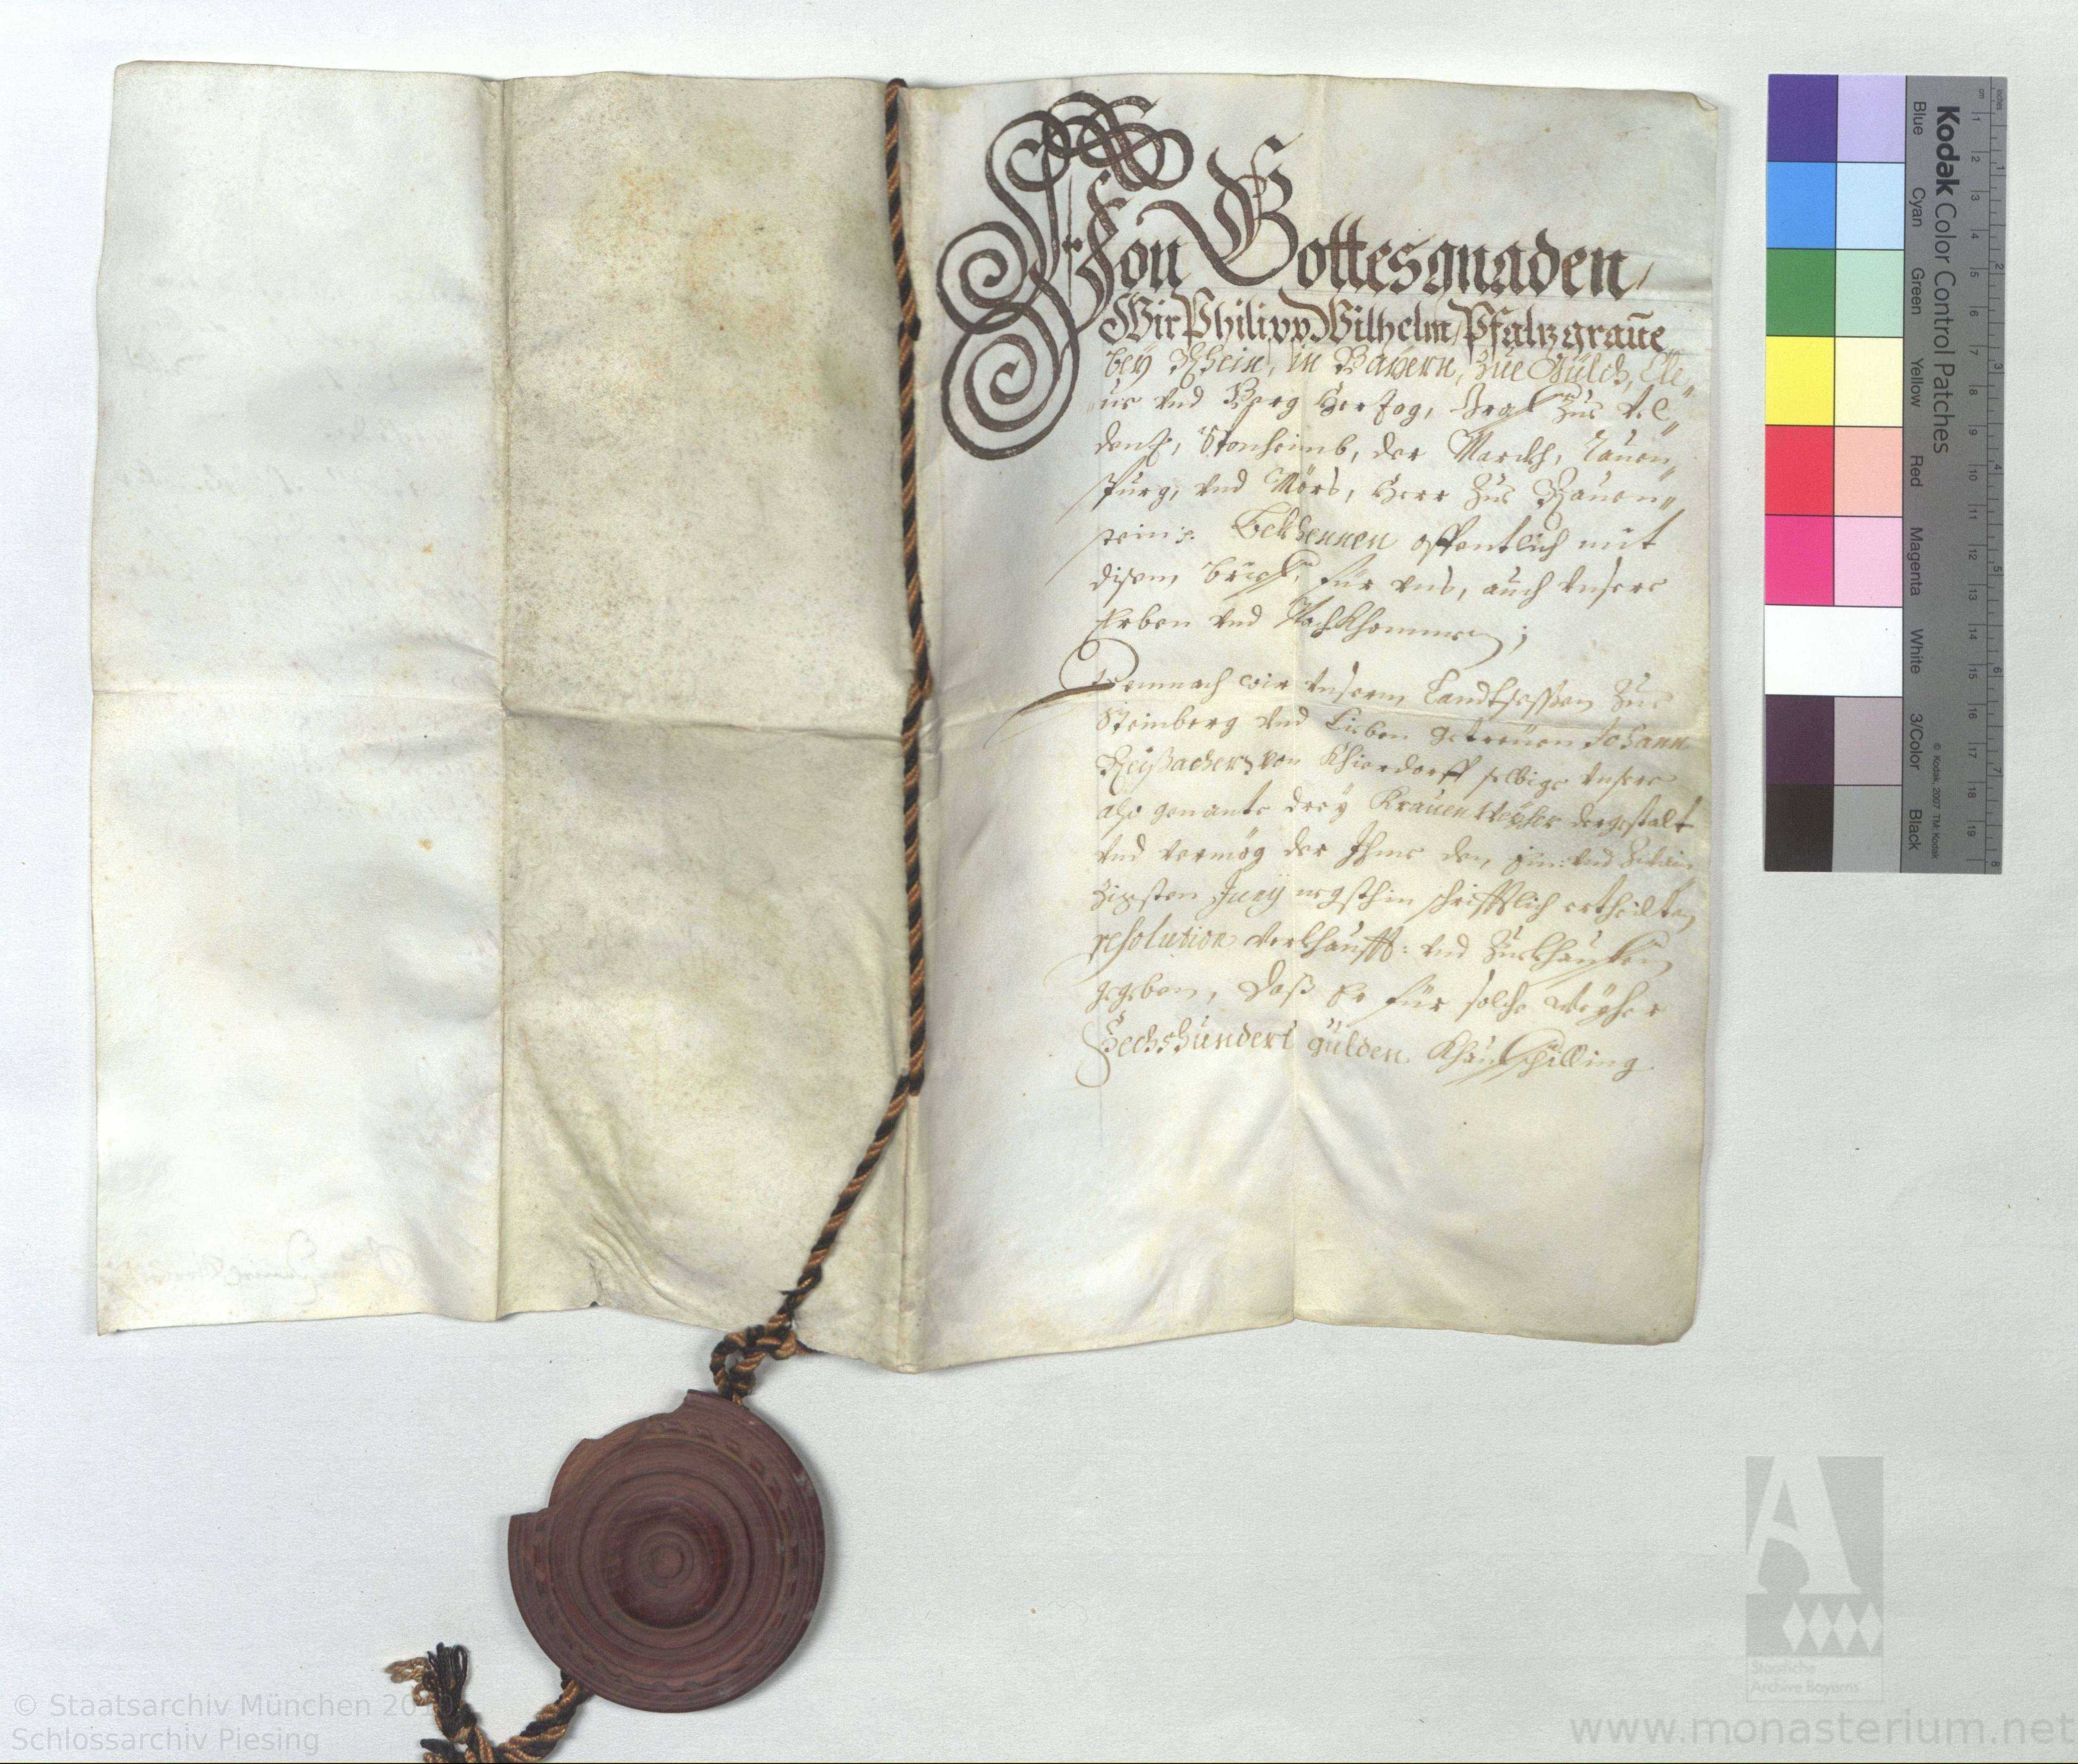 Von Gottes gnaden,
Wir Philipp Wilhelm, Pfaltzgraue
bey Rhein, in Bayern, zue Gülch, Cle„
ue vnd Berg Herzog, Graf zue Vel„
denz, Sponheimb, der Marckh, Rauen„
spurg, vnd Mörs, Herr zue Rauen„
stein etc. Bekhennen offentlich mit
disem brief, für vns, auch vnsere
Erben vnd Nachkhommen;
Demnach wir vnserm Landtsessen zue
Steinberg vnd Lieben getreuen Johann
Reyßacher von Khierdorff selbige vnsere
also genante drey Krauen Weyher dergestalt
vnd vermög der Ihme den ein: vnd zwain„
zigsten Juny schrifftlich ertheilten
resolution verkhaufft: vnd zuekhauffen
gegeben, daß Er für solche Weyher
Sechshundert gulden Khaufschilling
Kodak Color Control Patches
Blue Cyan Green Yellow Red Magenta White 3/Color Black
© Kodak, 2007 TM: Kodak
© Staatsarchiv München
Schlossarchiv Piesing
Staatliche
Archive Bayerns
www.monasterium.net